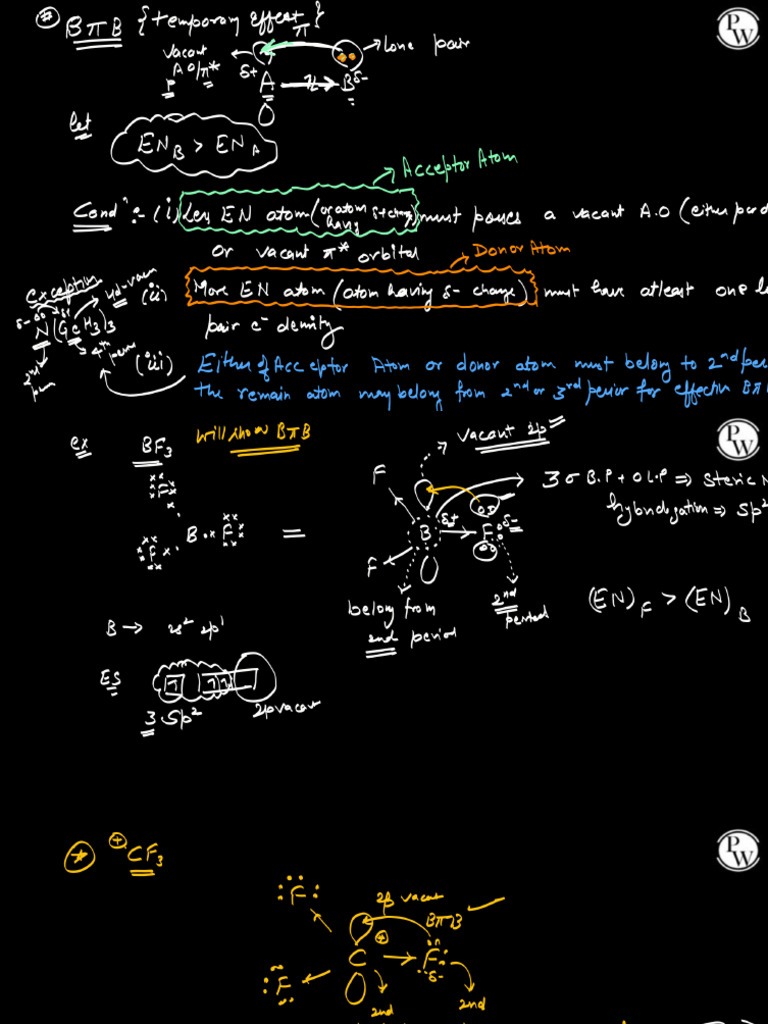 * BπB {temporary effect}
π
P
W
vacant
lone pair
A O/π*
p
δ+
A
B
δ-
let
EN_B > EN_A
Acceptor Atom
Condⁿ :- (i) Less EN atom (or atom having δ+ charge) must posses a vacant A.O (either p or d
or vacant π* orbital
Donor Atom
exception
(ii) More EN atom (atom having δ- charge) must have atleast one
pair e⁻ density
N(GeH3)3
4d-vacant
4th period
2nd
(iii) Either of Acceptor Atom or donor atom must belong to 2nd
the remain atom may belong from 2nd or 3rd period for effective BπB
ex BF3 will show BπB
vacant 2p
P
W
3σ B.P + 0 L.P ⇒ Steric N
hybridization ⇒ sp²
F
B
δ+
F
δ-
F
F
F
B
F
=
belong from
2nd period
2nd
period
(EN)_F > (EN)_B
B → 2s² 2p¹
ES
3 sp²
2p vacant
P
W
* ⊕CF3
F
2p vacant
BπB
⊕
C
F
δ-
F
2nd
2nd